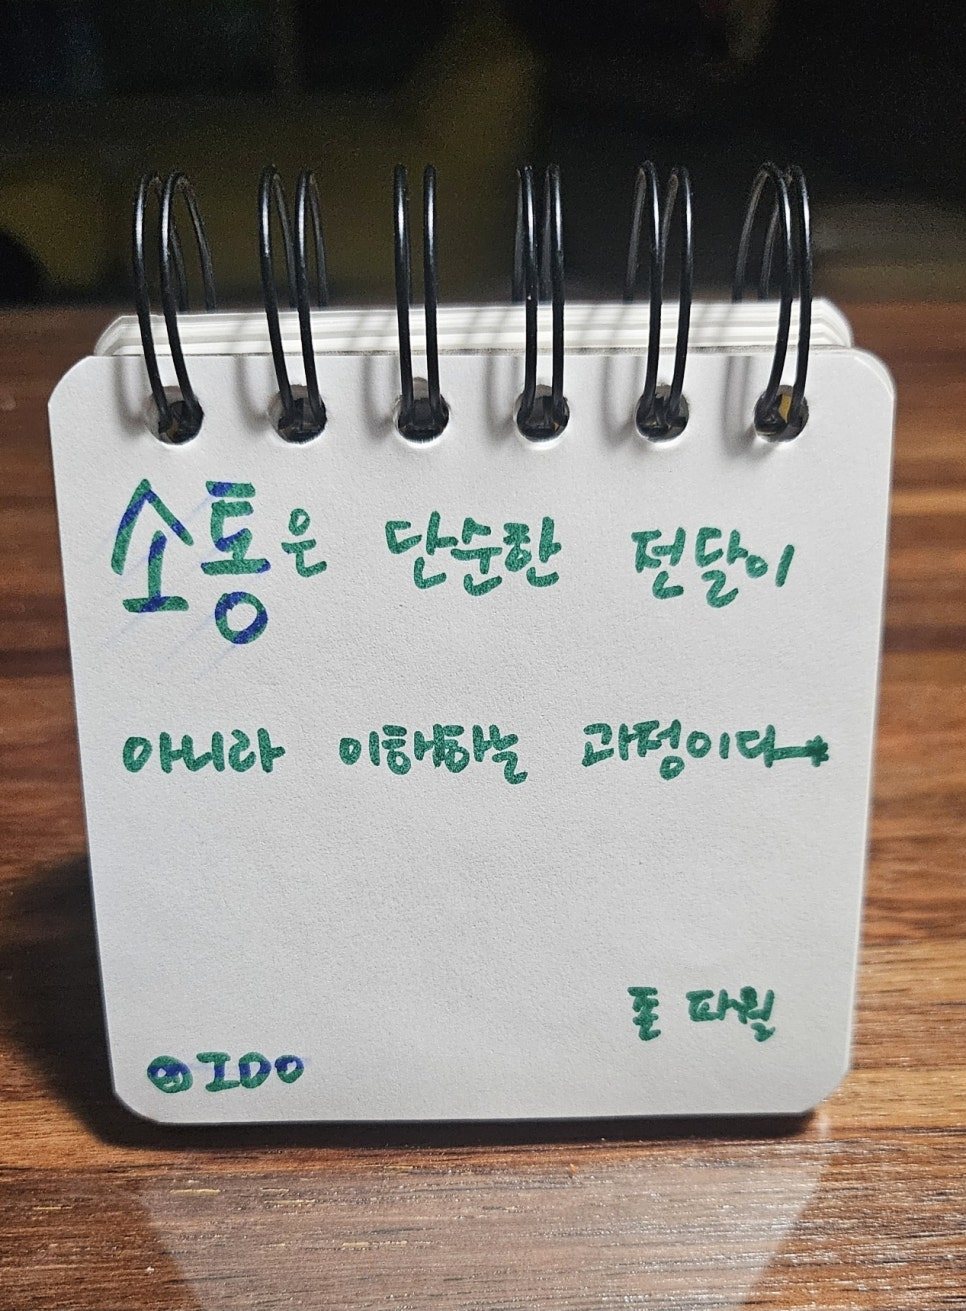 소통은 단순한 전달이
아니라 이해하는 과정이다
존 파월
IDO